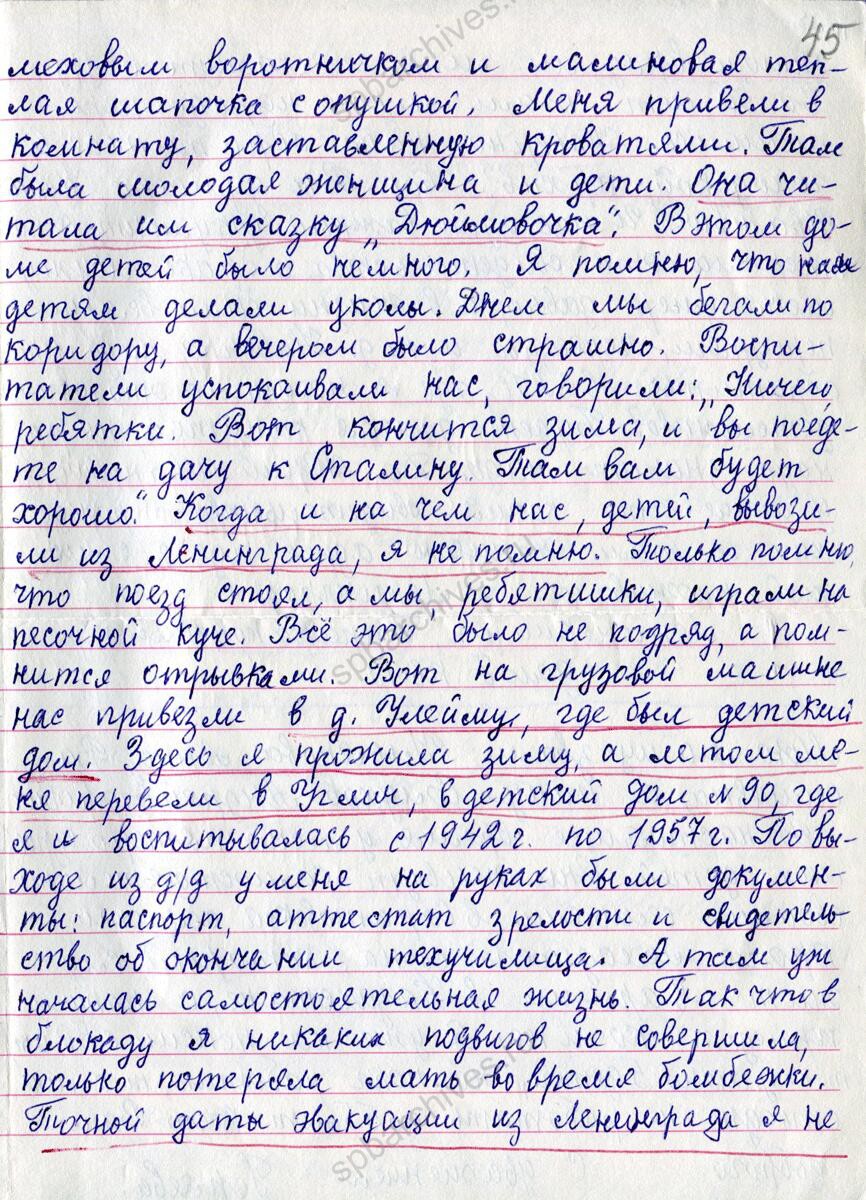 45
меховым воротничком и малиновая теп-
лая шапочка с опушкой. Меня привели в
комнату, заставленную кроватями. Там
была молодая женщина и дети. Она чи-
тала им сказку „Дюймовочка“. В этом до-
ме детей было немного. Я помню, что
детям делали уколы. Днем мы бегали по
коридору, а вечером было страшно. Воспи-
татели успокаивали нас, говорили: „Ничего,
ребятки. Вот кончится зима, и вы поеде-
те на дачу к Сталину. Там вам будет
хорошо“. Когда и на чем нас, детей, вывози-
ли из Ленинграда, я не помню. Только помню,
что поезд стоял, а мы, ребятишки, играли на
песочной куче. Всё это было не подряд, а пом-
нится отрывками. Вот на грузовой машине
нас привезли в д. Улейму, где был детский
дом. Здесь я прожила зиму, а летом ме-
ня перевели в Углич, в детский дом №90, где
я и воспитывалась с 1942 г. по 1957 г. По вы-
ходе из д/д у меня на руках были докумен-
ты: паспорт, аттестат зрелости и свидетель-
ство об окончании техучилища. А там уж
началась самостоятельная жизнь. Так что в
блокаду я никаких подвигов не совершила,
только потеряла мать во время бомбежки.
Точной даты эвакуации из Ленинграда я не
spbarchives.ru
spbarchives.ru
spbarchives.ru
spbarchives.ru